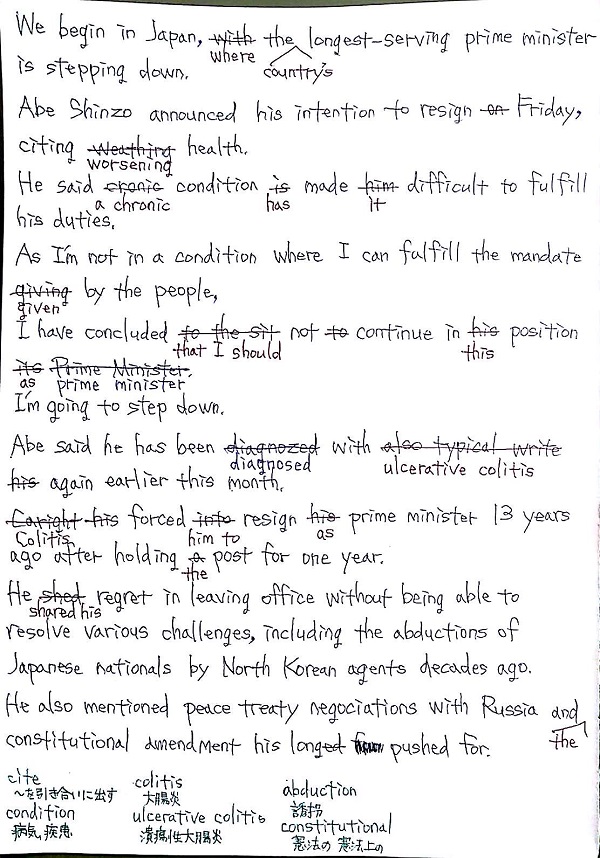 We begin in Japan, with the longest-serving prime minister
where country's
is stepping down.
Abe Shinzo announced his intention to resign on Friday,
citing Weathing health.
worsening
He said cronic condition is made him difficult to fulfill
a chronic has it
his duties.
As I'm not in a condition where I can fulfill the mandate
giving by the people,
given
I have concluded to the sit not to continue in his position
that I should this
its Prime Minister.
as prime minister
I'm going to step down.
Abe said he has been diagnozed with also typical write
diagnosed ulcerative colitis
his again earlier this month.
Caright his forced into resign his prime minister 13 years
Colitis him to as
ago after holding a post for one year.
the
He shed regret in leaving office without being able to
shared his
resolve various challenges, including the abductions of
Japanese nationals by North Korean agents decades ago.
He also mentioned peace treaty negociations with Russia and
the
constitutional amendment his longed pushed for.
cite colitis abduction
～を引き合いに出す 大腸炎 誘拐
condition ulcerative colitis constitutional
病気, 疾患 潰瘍性大腸炎 憲法の 憲法上の